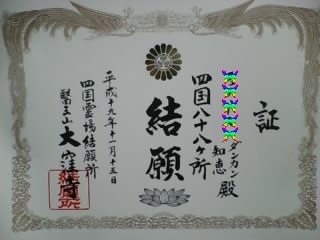 証
ダンカン
知恵
殿
四国八十八ヶ所
結願
平成十九年十一月十三日
四国霊場結願所
醫王山 大窪寺